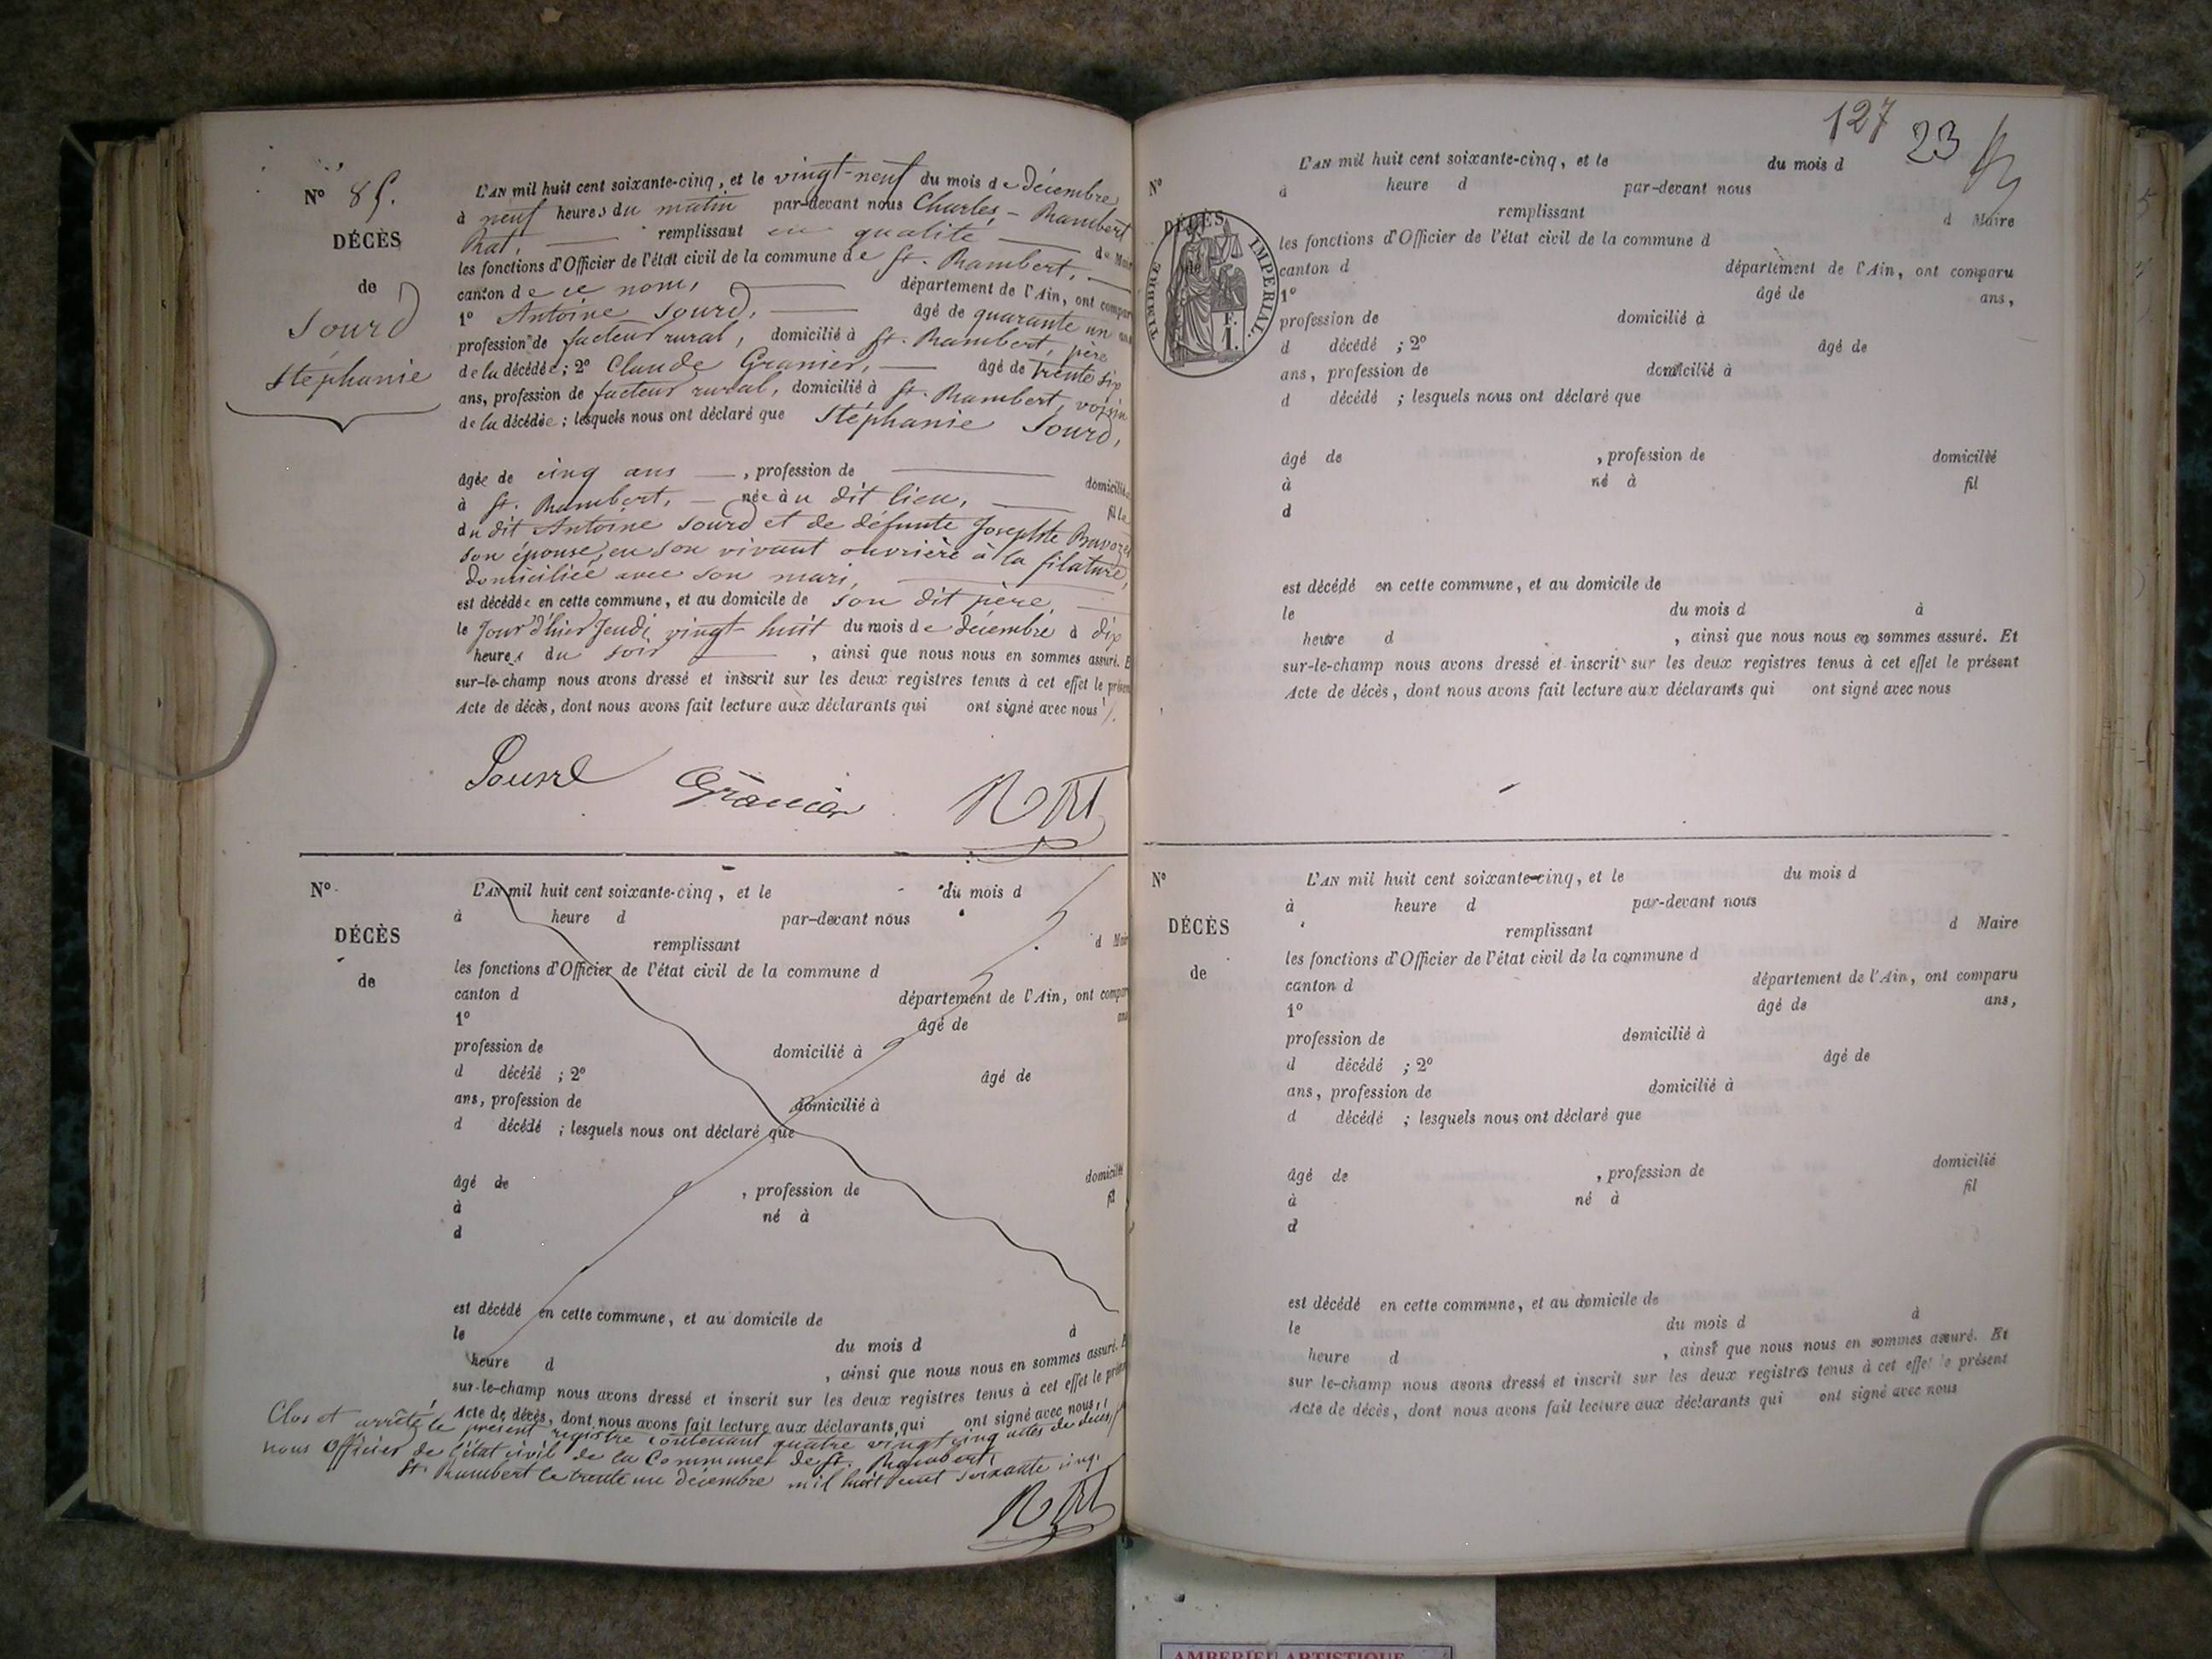 N° 85.
DÉCÈS
de
Sourd
Stéphanie
L'AN mil huit cent soixante-cinq, et le vingt-neuf du mois de décembre
à neuf heures du matin par-devant nous Charles-Rambert
Rat, remplissant en qualité de Mair
les fonctions d'Officier de l'état civil de la commune de St. Rambert,
canton de ce nom, département de l'Ain, ont compar
1° Antoine Sourd, âgé de quarante un ans
profession de facteur rural, domicilié à St. Rambert, père
de la décédée; 2° Claude Granier, âgé de trente six
ans, profession de facteur rural, domicilié à St. Rambert, voisin
de la décédée; lesquels nous ont déclaré que Stéphanie Sourd,
âgée de cinq ans, profession de domiciliée
à St. Rambert, née au dit lieu, fille
du dit Antoine Sourd et de défunte Josephte
son épouse, en son vivant ouvrière à la filature,
domiciliée avec son mari,
est décédée en cette commune, et au domicile de son dit père,
le jour d'hier Jeudi vingt-huit du mois de décembre à dix
heures du soir, ainsi que nous nous en sommes assuré. E
sur-le-champ nous avons dressé et inscrit sur les deux registres tenus à cet effet le présen
Acte de décès, dont nous avons fait lecture aux déclarants qui ont signé avec nous.
Sourd Granier Rat
N°
DÉCÈS
de
L'AN mil huit cent soixante-cinq, et le du mois d
à heure d par-devant nous
remplissant d Mair
les fonctions d'Officier de l'état civil de la commune d
canton d département de l'Ain, ont compar
1° âgé de ans
profession de domicilié à
d décédé ; 2° âgé de
ans, profession de domicilié à
d décédé ; lesquels nous ont déclaré que
âgé de , profession de domicilié
à né à fil
d
est décédé en cette commune, et au domicile de
le du mois d à
heure d , ainsi que nous nous en sommes assuré. E
sur-le-champ nous avons dressé et inscrit sur les deux registres tenus à cet effet le présen
Acte de décès, dont nous avons fait lecture aux déclarants qui ont signé avec nous
Clos et arrêté le présent registre contenant quatre vingt cinq actes de décès
nous Officier de l'état civil de la Commune de St. Rambert,
St. Rambert le trente un décembre mil huit cent soixante cinq.
Rat
127 23
N°
DÉCÈS
de
TIMBRE IMPÉRIAL.
F.
1.
L'AN mil huit cent soixante-cinq, et le du mois d
à heure d par-devant nous
remplissant d Maire
les fonctions d'Officier de l'état civil de la commune d
canton d département de l'Ain, ont comparu
1° âgé de ans,
profession de domicilié à
d décédé ; 2° âgé de
ans, profession de domicilié à
d décédé ; lesquels nous ont déclaré que
âgé de , profession de domicilié
à né à fil
d
est décédé en cette commune, et au domicile de
le du mois d à
heure d , ainsi que nous nous en sommes assuré. Et
sur-le-champ nous avons dressé et inscrit sur les deux registres tenus à cet effet le présent
Acte de décès, dont nous avons fait lecture aux déclarants qui ont signé avec nous
N°
DÉCÈS
de
L'AN mil huit cent soixante-cinq, et le du mois d
à heure d par-devant nous
remplissant d Maire
les fonctions d'Officier de l'état civil de la commune d
canton d département de l'Ain, ont comparu
1° âgé de ans,
profession de domicilié à
d décédé ; 2° âgé de
ans, profession de domicilié à
d décédé ; lesquels nous ont déclaré que
âgé de , profession de domicilié
à né à fil
d
est décédé en cette commune, et au domicile de
le du mois d à
heure d , ainsi que nous nous en sommes assuré. Et
sur le-champ nous avons dressé et inscrit sur les deux registres tenus à cet effet le présent
Acte de décès, dont nous avons fait lecture aux déclarants qui ont signé avec nous
AMBERIEU ARTISTIQUE